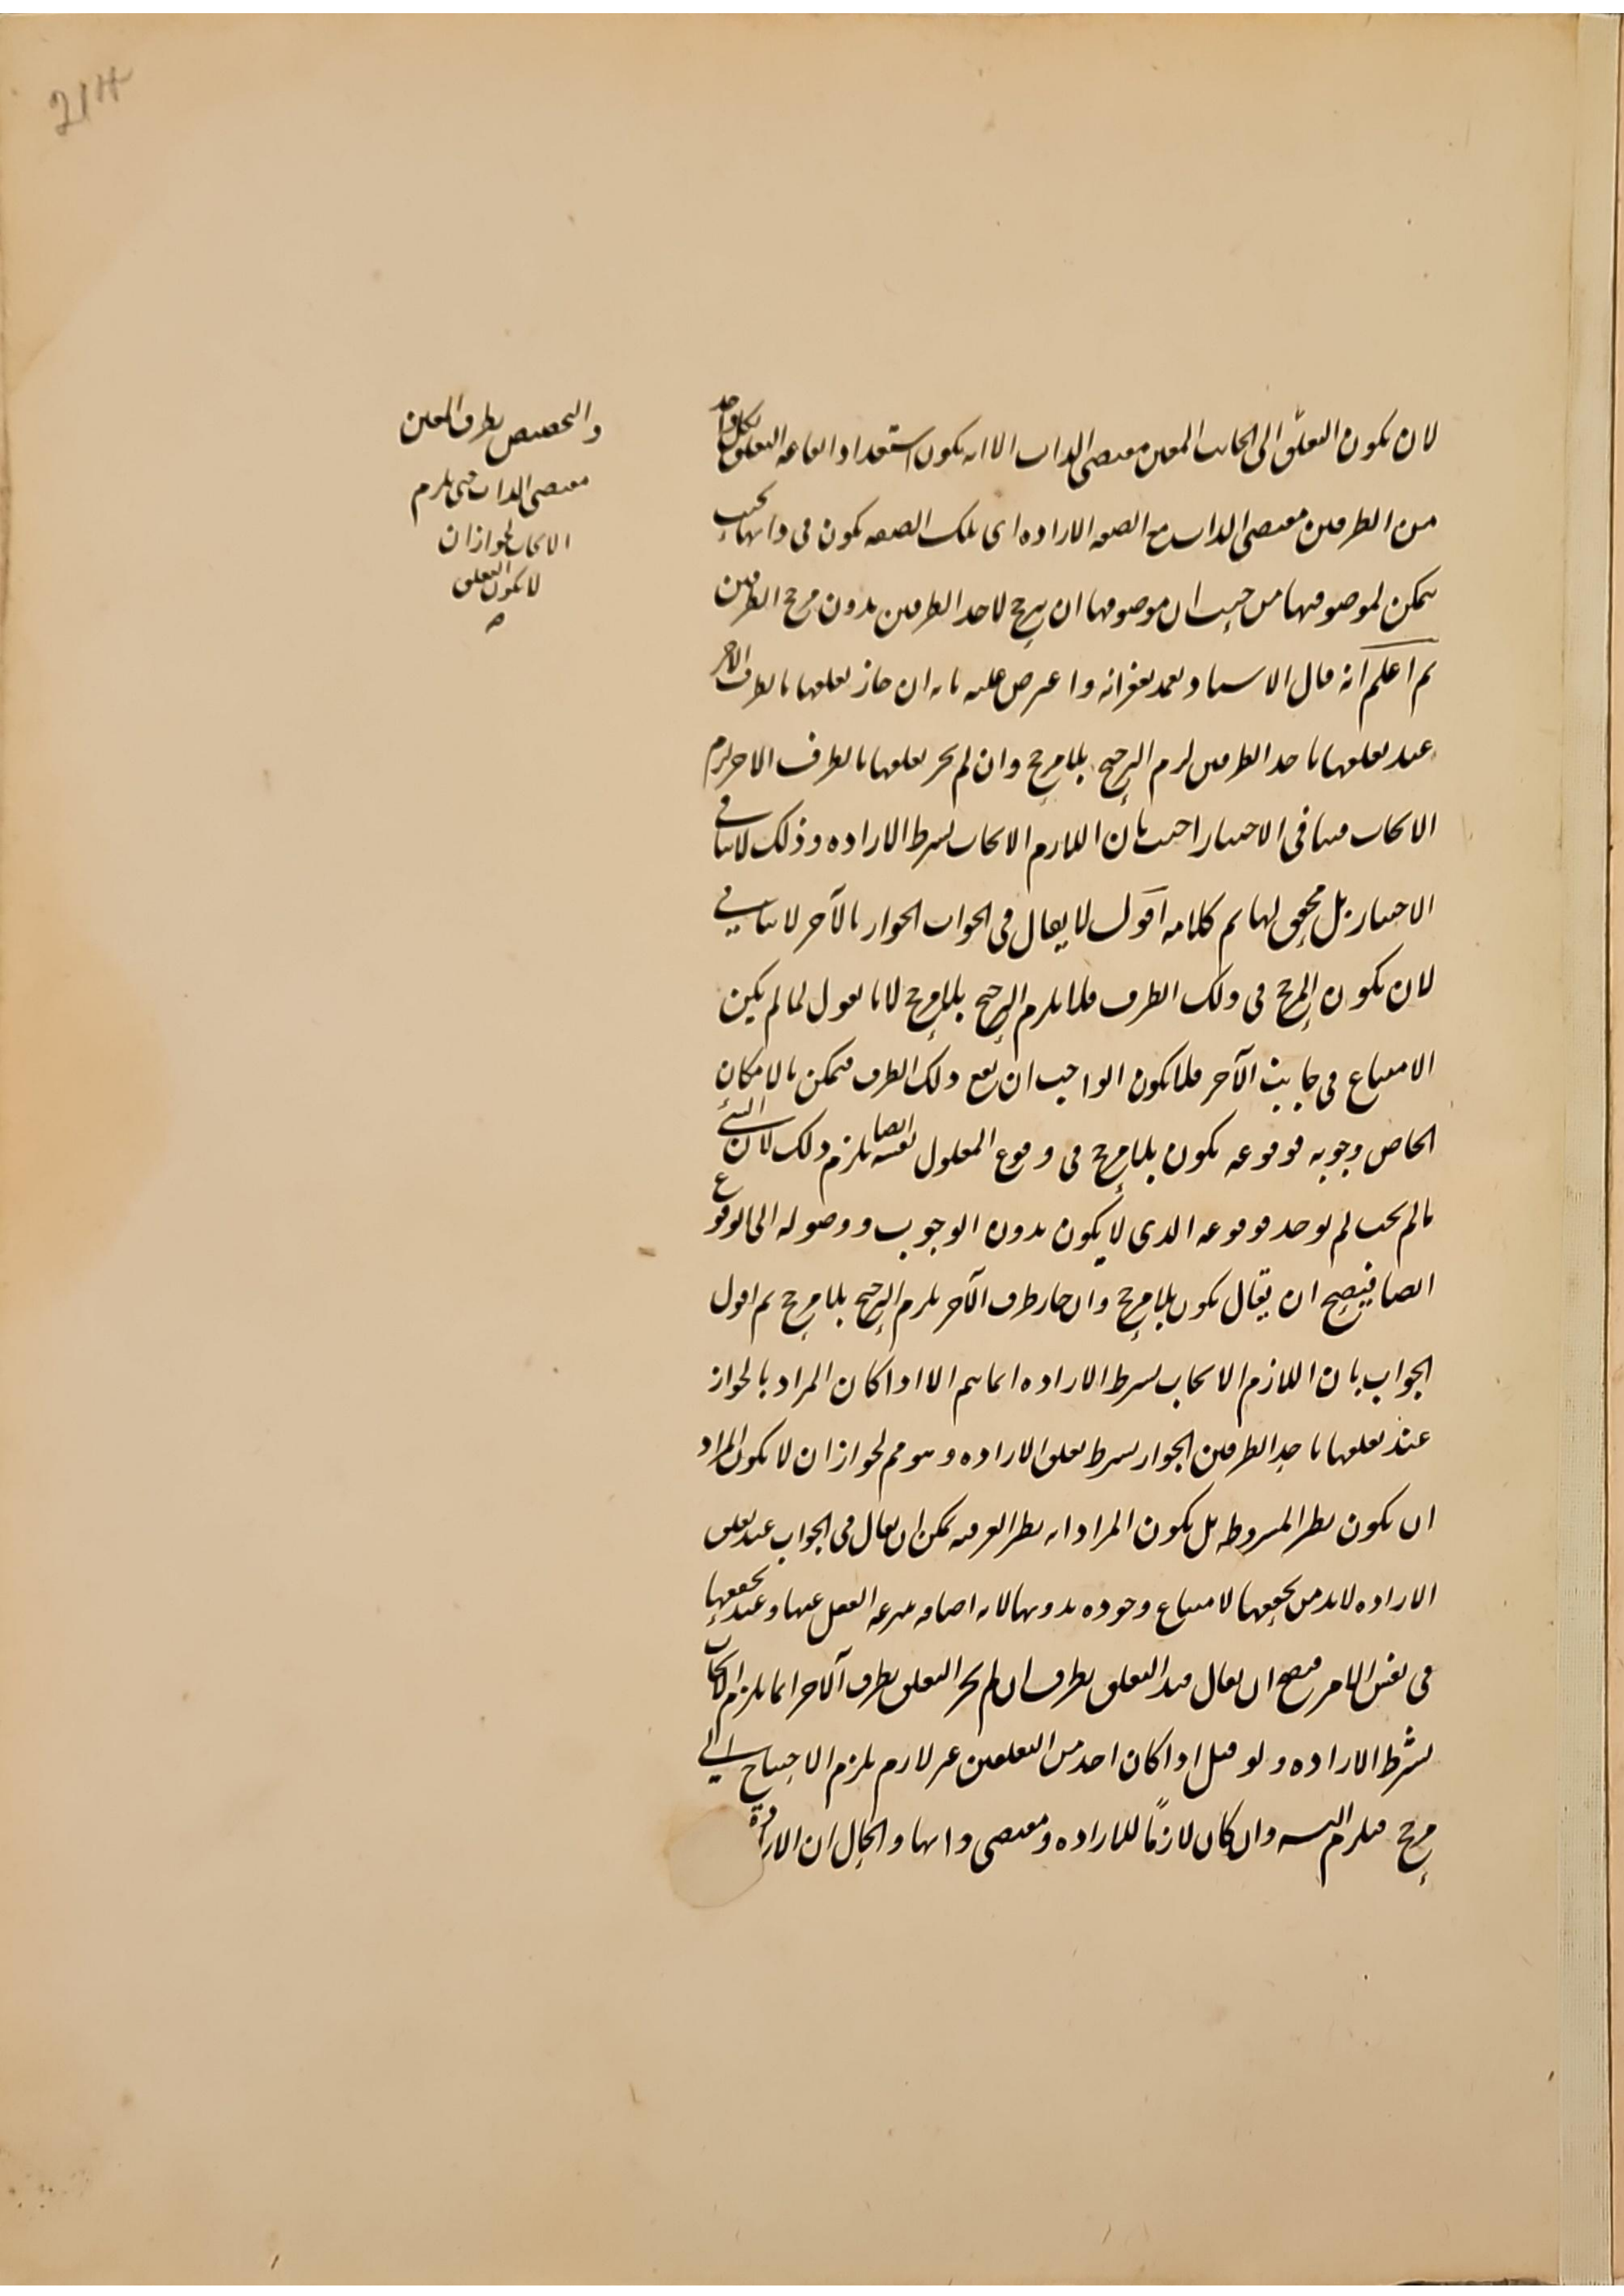 لان يكون التعلق الى الجانب المعين مقتضى الذات الا انه يكون استعداد التعلق بكل واحد
من الطرفين مقتضى الذات مع الصفه الاراده اى تلك الصفه تكون فى ذاتها بحيث
يمكن لموصوفها من حيث ان موصوفها ان يرجح لاحد الطرفين بدون مرجح الطرفين
ثم اعلم انه قال الاستاد تغمد بغفرانه واعترض عليه بانه ان جاز تعلقها بالطرف الاخر
عند تعلقها باحد الطرفين لزم الترجيح بلا مرجح وان لم يجز تعلقها بالطرف الاخر لزم
الايجاب منافى الاختيار اجيب بان اللازم الايجاب بشرط الاراده وذلك لا ينافى
الاختيار بل محقق لها تم كلامه اقول لا يقال فى الجواب الجواز بالآخر لا ينافى
لان يكون المرجح فى ذلك الطرف فلا يلزم الترجيح بلا مرجح لانا نقول لما لم يكن
الامتناع فى جانب الآخر فلا يكون الواجب ان يقع ذلك الطرف فيمكن بالامكان
الخاص وجوبه فوقوعه يكون بلا مرجح فى وقوع المعلول نفسه ايضا يلزم ذلك لان الشئ
ما لم يجب لم يوجد فوقوعه الذى لا يكون بدون الوجوب ووصوله الى الوقوع
ايضا فيصح ان يقال يكون بلا مرجح وان جاز طرف الآخر يلزم الترجيح بلا مرجح ثم اقول
الجواب بان اللازم الايجاب بشرط الاراده انما يتم الا اذا كان المراد بالجواز
عند تعلقها باحد الطرفين الجواز بشرط تعلق الاراده وهو مم لجواز ان لا يكون المراد
ان يكون بطر المشروطه بل يكون المراد انه بطر العرفيه يمكن ان يقال فى الجواب عند تعلق
الاراده لابد من تحققها لامتناع وجوده بدونها لانه اضافه العقل عنها وعند تحققها
فى نفس الامر فيصح ان يقال عند التعلق بطرف ان لم يجز التعلق بطرف الآخر انما يلزم الايجاب
بشرط الاراده ولو قيل اذا كان احد من التعلقين غير لازم يلزم الاحتياج الى
مرجح فيلزم التس وان كان لازمًا للاراده ومقتضى ذاتها والحال ان الارادة
والتخصيص بطرف المعين
مقتضى الذات حتى يلزم
الايجاب لجواز ان
لا يكون التعلق